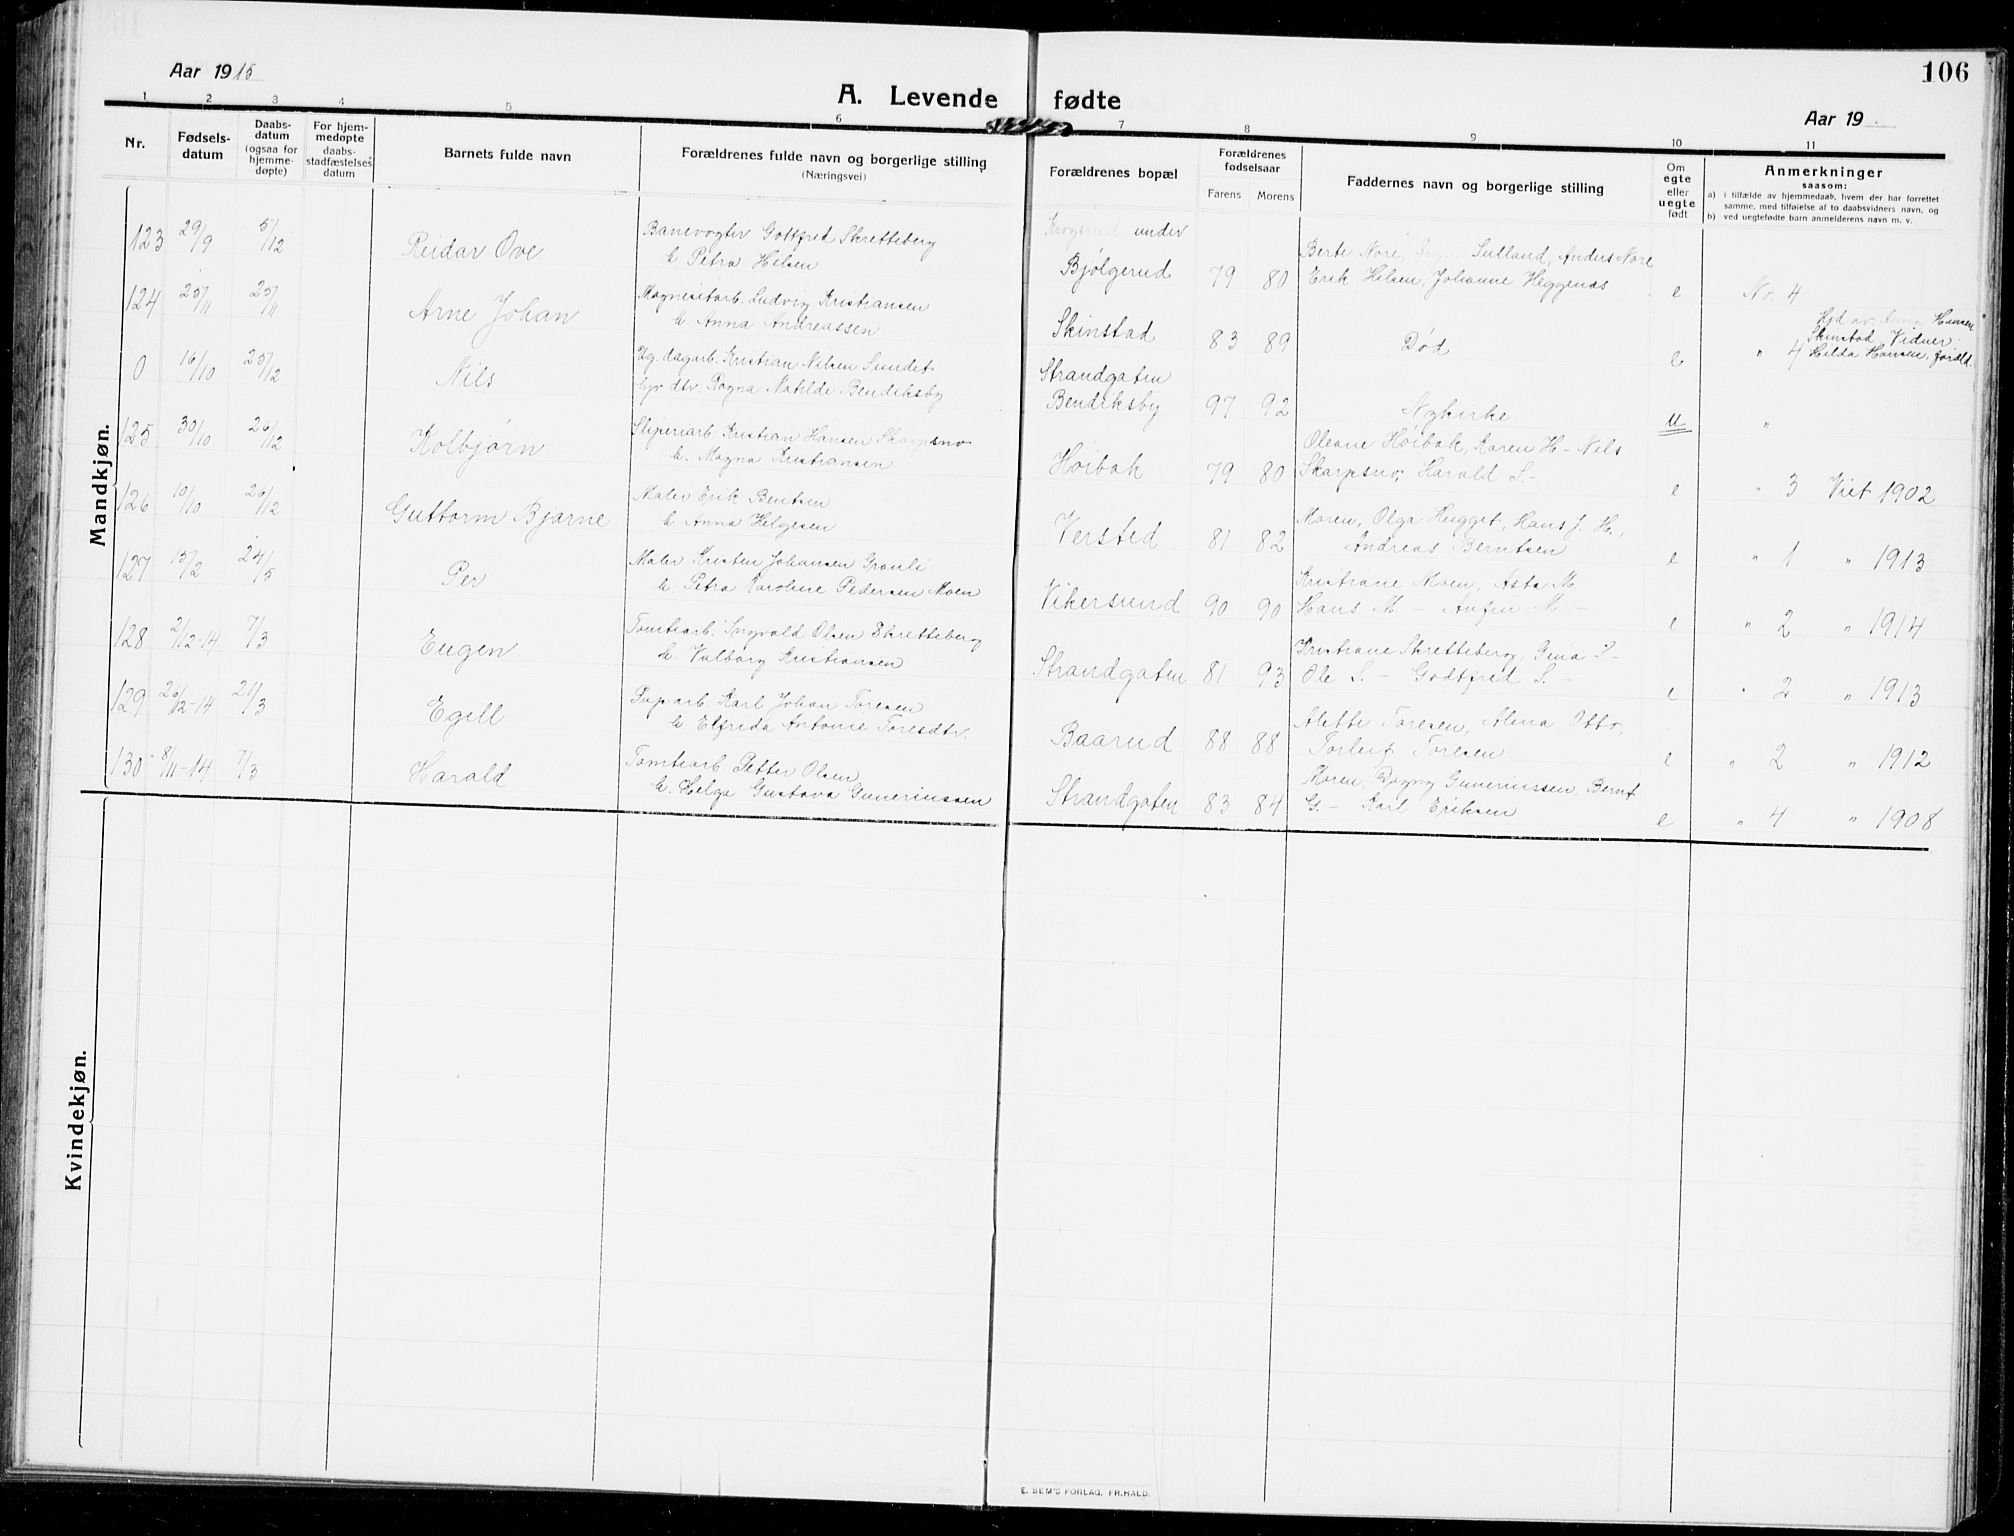 106
Aar 1915
A. Levende fødte
Aar 19
1 2 3 4 5 6 7 8 9 10 11
Nr.
Fødsels-
datum
Daabs-
datum
(ogsaa for
hjemme-
døpte)
For hjem-
medøpte
daabs-
stadfæstelses
datum
Barnets fulde navn
Forældrenes fulde navn og borgerlige stilling
(Næringsvei)
Forældrenes bopæl
Forældrenes
fødselsaar
Farens Morens
Faddernes navn og borgerlige stilling
Om
egte
eller
uegte
født
Anmerkninger
saasom:
a) i tilfælde av hjemmedaab, hvem der har forrettet
samme, med tilføielse af to daabsvidners navn, og
b) ved uegtefødte barn anmelderens navn m. v.
Mandkjøn.
123 29/9 5/12 Reidar Ove
Banevogter Gottfred Skretteberg
h. Petra Helsen
under
Bjølgerud 79 80
Berte Nore, Sulland, Anders Nore
Erik Helsen, Johanne Heggenæs
e Nr. 4
124 25/11 25/11 Arne Johan
Magnesitarb. Ludvig Kristiansen
h. Anna Andreassen
Skinstad 83 89 Død e " 4
Hjd av Anna Hansen
Skinstad Vidner:
Hilda Hansen, foræld.
0 16/10 25/12 Nils
Ug. dagarb. Kristian Nilsen Sundet
Ragna Matilde Bendiksby
Strandgaten
Bendiksby 97 92 Nykirke u "
125 30/10 26/12 Kolbjørn
Sliperiarb. Kristian Hansen Skarpsno
h. Magna Kristiansen
Høibak 79 80
Oleane Høibak, Karen H- Nils
Skarpsno, Harald S.-
e " 3 Viet 1902
126 10/10 26/12 Guttorm Bjarne
Maler Erik Bentsen
h. Anna Helgesen
Versted 81 82
Maren, Olga Hugget, Hans J. H.,
Andreas Berntsen
e " 1 " 1913
127 15/2 24/5 Per
Maler Kristen Johansen Granli
h. Petra Karoline Pedersen Moen
Vikersund 90 90
Kristiane Moen, Asta M
Hans M - Anfin M -
e " 2 " 1914
128 2/12-14 7/3 Eugen
Tomtearb. Ingvald Olsen Skretteberg
h. Valborg Kristiansen
Strandgaten 81 93
Kristiane Skretteberg, Gena S-
Ole S. - Godtfred S. -
e " 2 " 1913
129 26/12-14 21/3 Egill
Paparb Karl Johan Toresen
h. Elfrida Antonie Toresdtr.
Baarud 88 88
Alette Toresen, Alma Otto,
Torleif Toresen
e " 2 " 1912
130 8/11-14 7/3 Harald
Tomtearb Petter Olsen
h. Helga Gustava Gunerinssen
Strandgaten 83 84
Karen, Dagny Gunerinssen, Bernt
G.- Karl Eriksen
e " 4 " 1908
Kvindekjøn.
E. SEM'S FORLAG, FR.HALD.